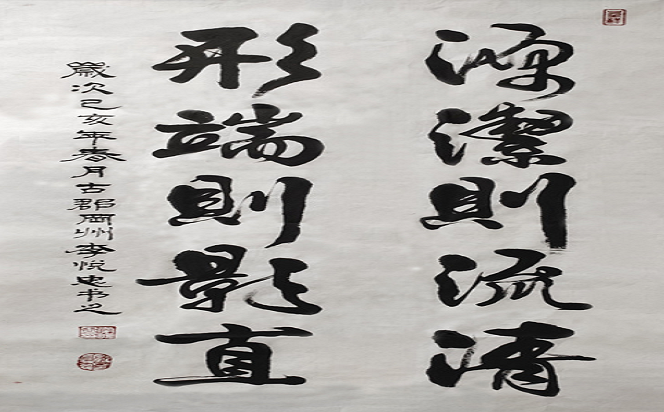 源潔則流清
形端則影直
歲次己亥年春月古郡商州李悅忠书之